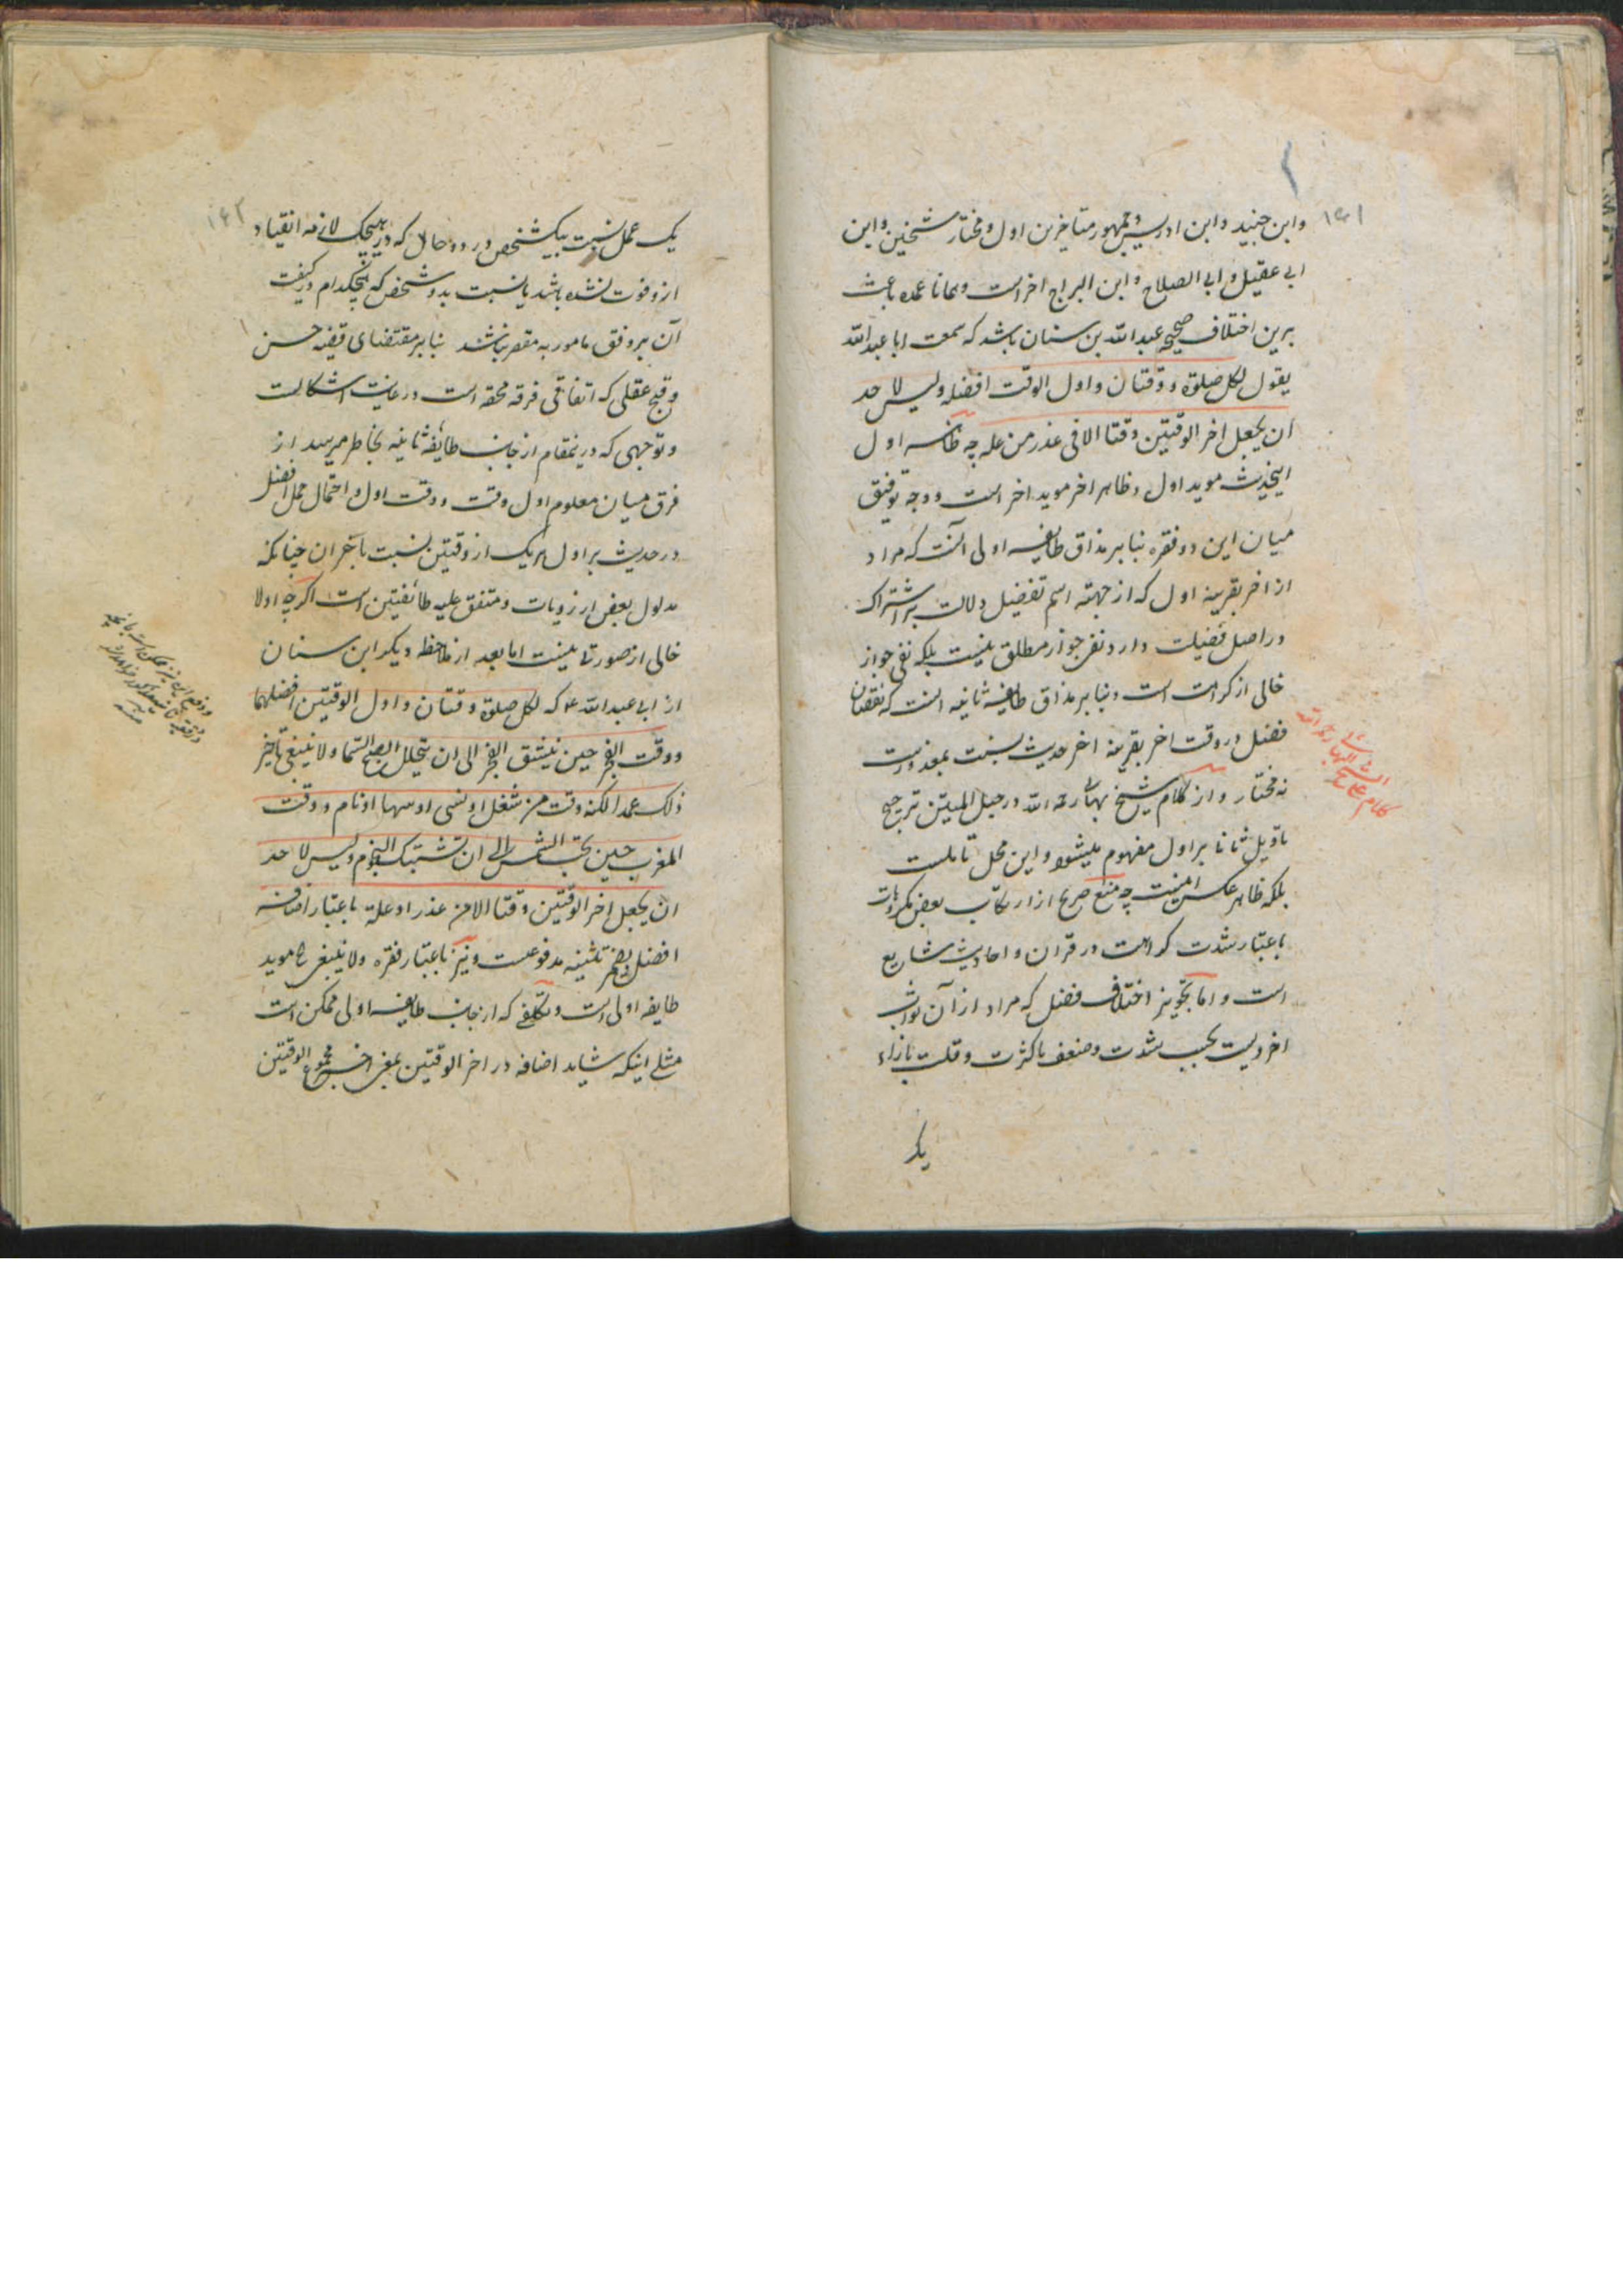 ۱۶۱
وابن جنید وابن ادریس وجمهور متاخرین اول ومختار شیخین وابن
ابی عقیل وابی الصلاح وابن البراج اخر است وهمانا عمده باعث
برین اختلاف صحیحه عبد الله بن سنان باشد که سمعت ابا عبد الله
یقول لکل صلوة ووقتان واول الوقت افضله ولیس لاحد
ان یجعل اخر الوقتین وقتا الا فی عذر من عله چه ظاهر اول
اینحدیث موید اول وظاهر اخر موید اخر است ووجه توفیق
میان این دو فقره بنابر مذاق طایفه اولی آنست که مراد
از اخر بقرینه اول که از جهته اسم تفضیل دلالت بر اشتراک
در اصل فضیلت دارد نفی جواز مطلق نیست بلکه نفی جواز
خالی از کراهت است وبنابر مذاق طایفه ثانیه انست که نقصان
فضل در وقت اخر بقرینه اخر حدیث نسبت بمعذورست
نه مختار واز کلام شیخ بهائی رحمه الله در حبل المتین ترجیح
تاویل ثانی بر اول مفهوم میشود واین محل تاملست
بلکه ظاهر عکس اینست چه منع صریح از ارتکاب بعض مکروهات
باعتبار شدت کراهت در قران واحادیث شایع
است واما تجویز اختلاف فضل که مراد از آن ثواب
اخرویست بحسب شدت وضعف یا کثرت وقلت بازاء
یک
کلام علی
الشیخ البهائی رحمه الله
۱۶۲
یک عمل نسبت بیکشخص در دو حال که در هیچیک لازمه انقیاد
ازو فوت نشده باشد یا نسبت بدو شخص که هیچکدام در کیفیت
آن بر وفق مامور به مقصر نباشند بنابر مقتضای قضیه حسن
وقبح عقلی که اتفاقی فرقه محقه است در غایت اشکالست
وتوجیهی که درینمقام از جانب طایفه ثانیه بخاطر میرسد از
فرق میان معلوم اول وقت ووقت اول واحتمال حمل افضل
در حدیث بر اول هر یک از وقتین نسبت بآخر آن چنانکه
مدلول بعض از رویات ومتفق علیه طائفتین است اگرچه اولا
خالی از صورتی نیست اما بعد از ملاحظه دیگر ابن سنان
از ابی عبد الله ع که لکل صلوة وقتان واول الوقتین افضلهما
ووقت الفجر حین ینشق الفجر الی ان یتجلل الصبح السما ولا ینبغی تاخیر
ذلک عمدا لکنه وقت من شغل او نسی او سها او نام ووقت
المغرب حین تجب الشمس الی ان تشتبک النجوم ولیس لاحد
ان یجعل اخر الوقتین وقتا الا من عذر او علة باعتبار اضافه
افضل بضمیر تثنیه مدفوعست ونیز باعتبار فقره ولا ینبغی الخ موید
طایفه اولی است وتکلفی که از جانب طایفه اولی ممکن است
مثل اینکه شاید اضافه در اخر الوقتین بمعنی اخر مجموع الوقتین